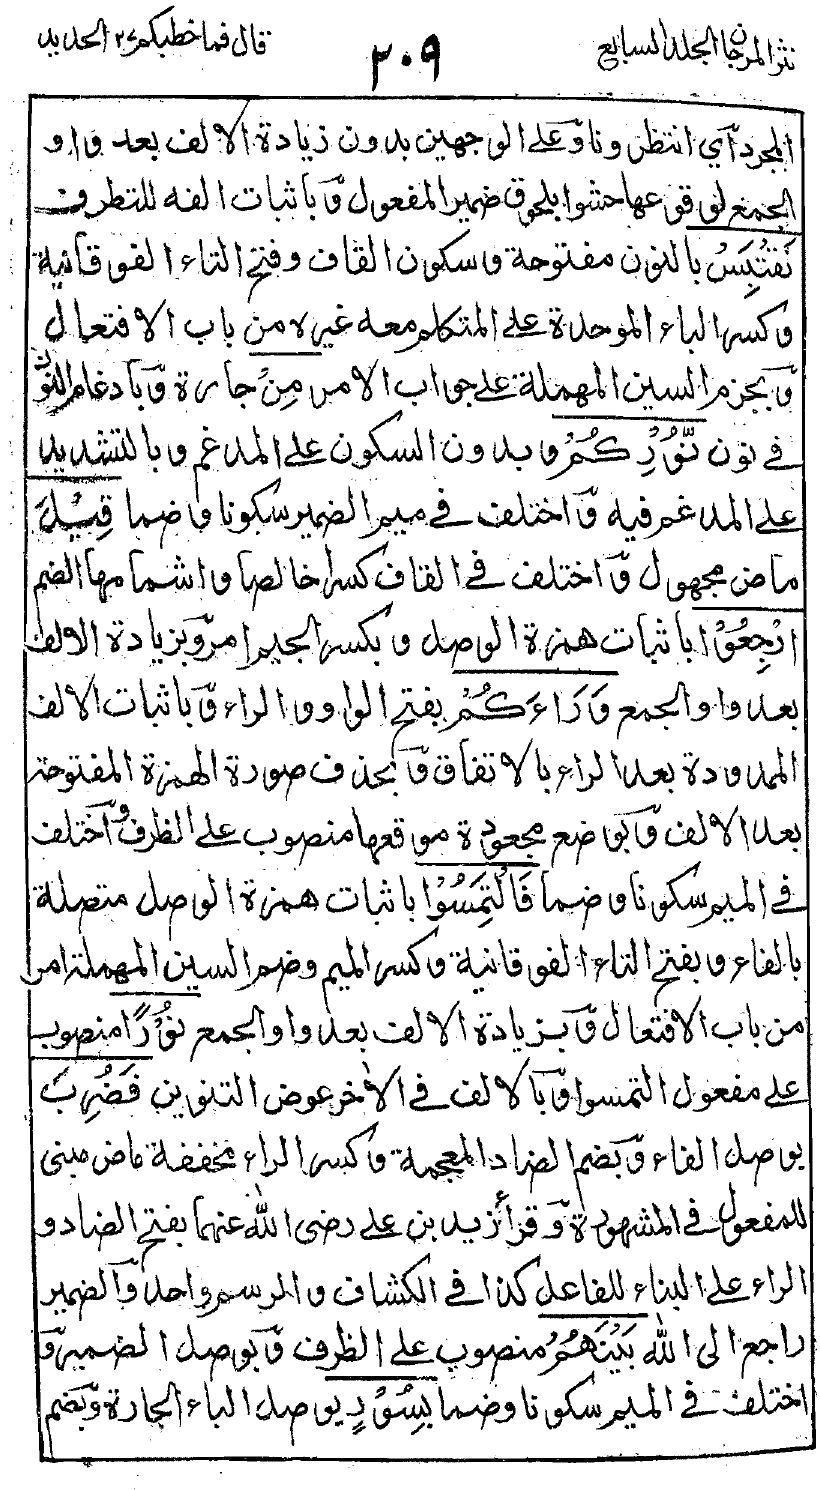 نثر المرجان الجلد السابع
٢٠٩
قال فما خطبكم ٢٧ الحديد
المجرد أي انتظرونا وعلى الوجهين بدون زيادة الالف بعد واو
الجمع لوقوعها حشوا بلحوق ضمير المفعول وباثبات الفه للتطرف
نَقْتَبِسْ بالنون مفتوحة وسكون القاف وفتح التاء الفوقانية
وكسر الباء الموحدة على المتكلم معه غيره من باب الافتعال
وبجزم السين المهملة على جواب الامر مِنْ جارة وبادغام النون
في نون نُّوْرِكُمْ وبدون السكون على المدغم وبالتشديد
على المدغم فيه واختلف في ميم الضمير سكونا وضما قِيْلَ
ماض مجهول واختلف في القاف كسرا خالصا واشمامها الضم
ارْجِعُوْا باثبات همزة الوصل وبكسر الجيم امر وبزيادة الالف
بعد واو الجمع وَرَاءَكُمْ بفتح الواو والراء وباثبات الالف
الممدودة بعد الراء بالاتفاق وبحذف صورة الهمزة المفتوحة
بعد الالف وبوضع مجعودة موقعها منصوب على الظرف واختلف
في الميم سكونا وضما فَالْتَمِسُوْا باثبات همزة الوصل متصلة
بالفاء وبفتح التاء الفوقانية وكسر الميم وضم السين المهملة امر
من باب الافتعال وبزيادة الالف بعد واو الجمع نُوْرًا منصوب
على مفعول التمسوا وبالالف في الاخر عوض التنوين فَضُرِبَ
بوصل الفاء وبضم الضاد المعجمة وكسر الراء مخففة ماض مبنى
للمفعول في المشهورة وقرأ زيد بن على رضى الله عنهما بفتح الضاد و
الراء على البناء للفاعل كذا في الكشاف والرسم واحد والضمير
راجع الى الله بَيْنَهُمْ منصوب على الظرف وبوصل الضمير و
اختلف في الميم سكونا وضما بِسُوْرٍ بوصل الباء الجارة وبضم